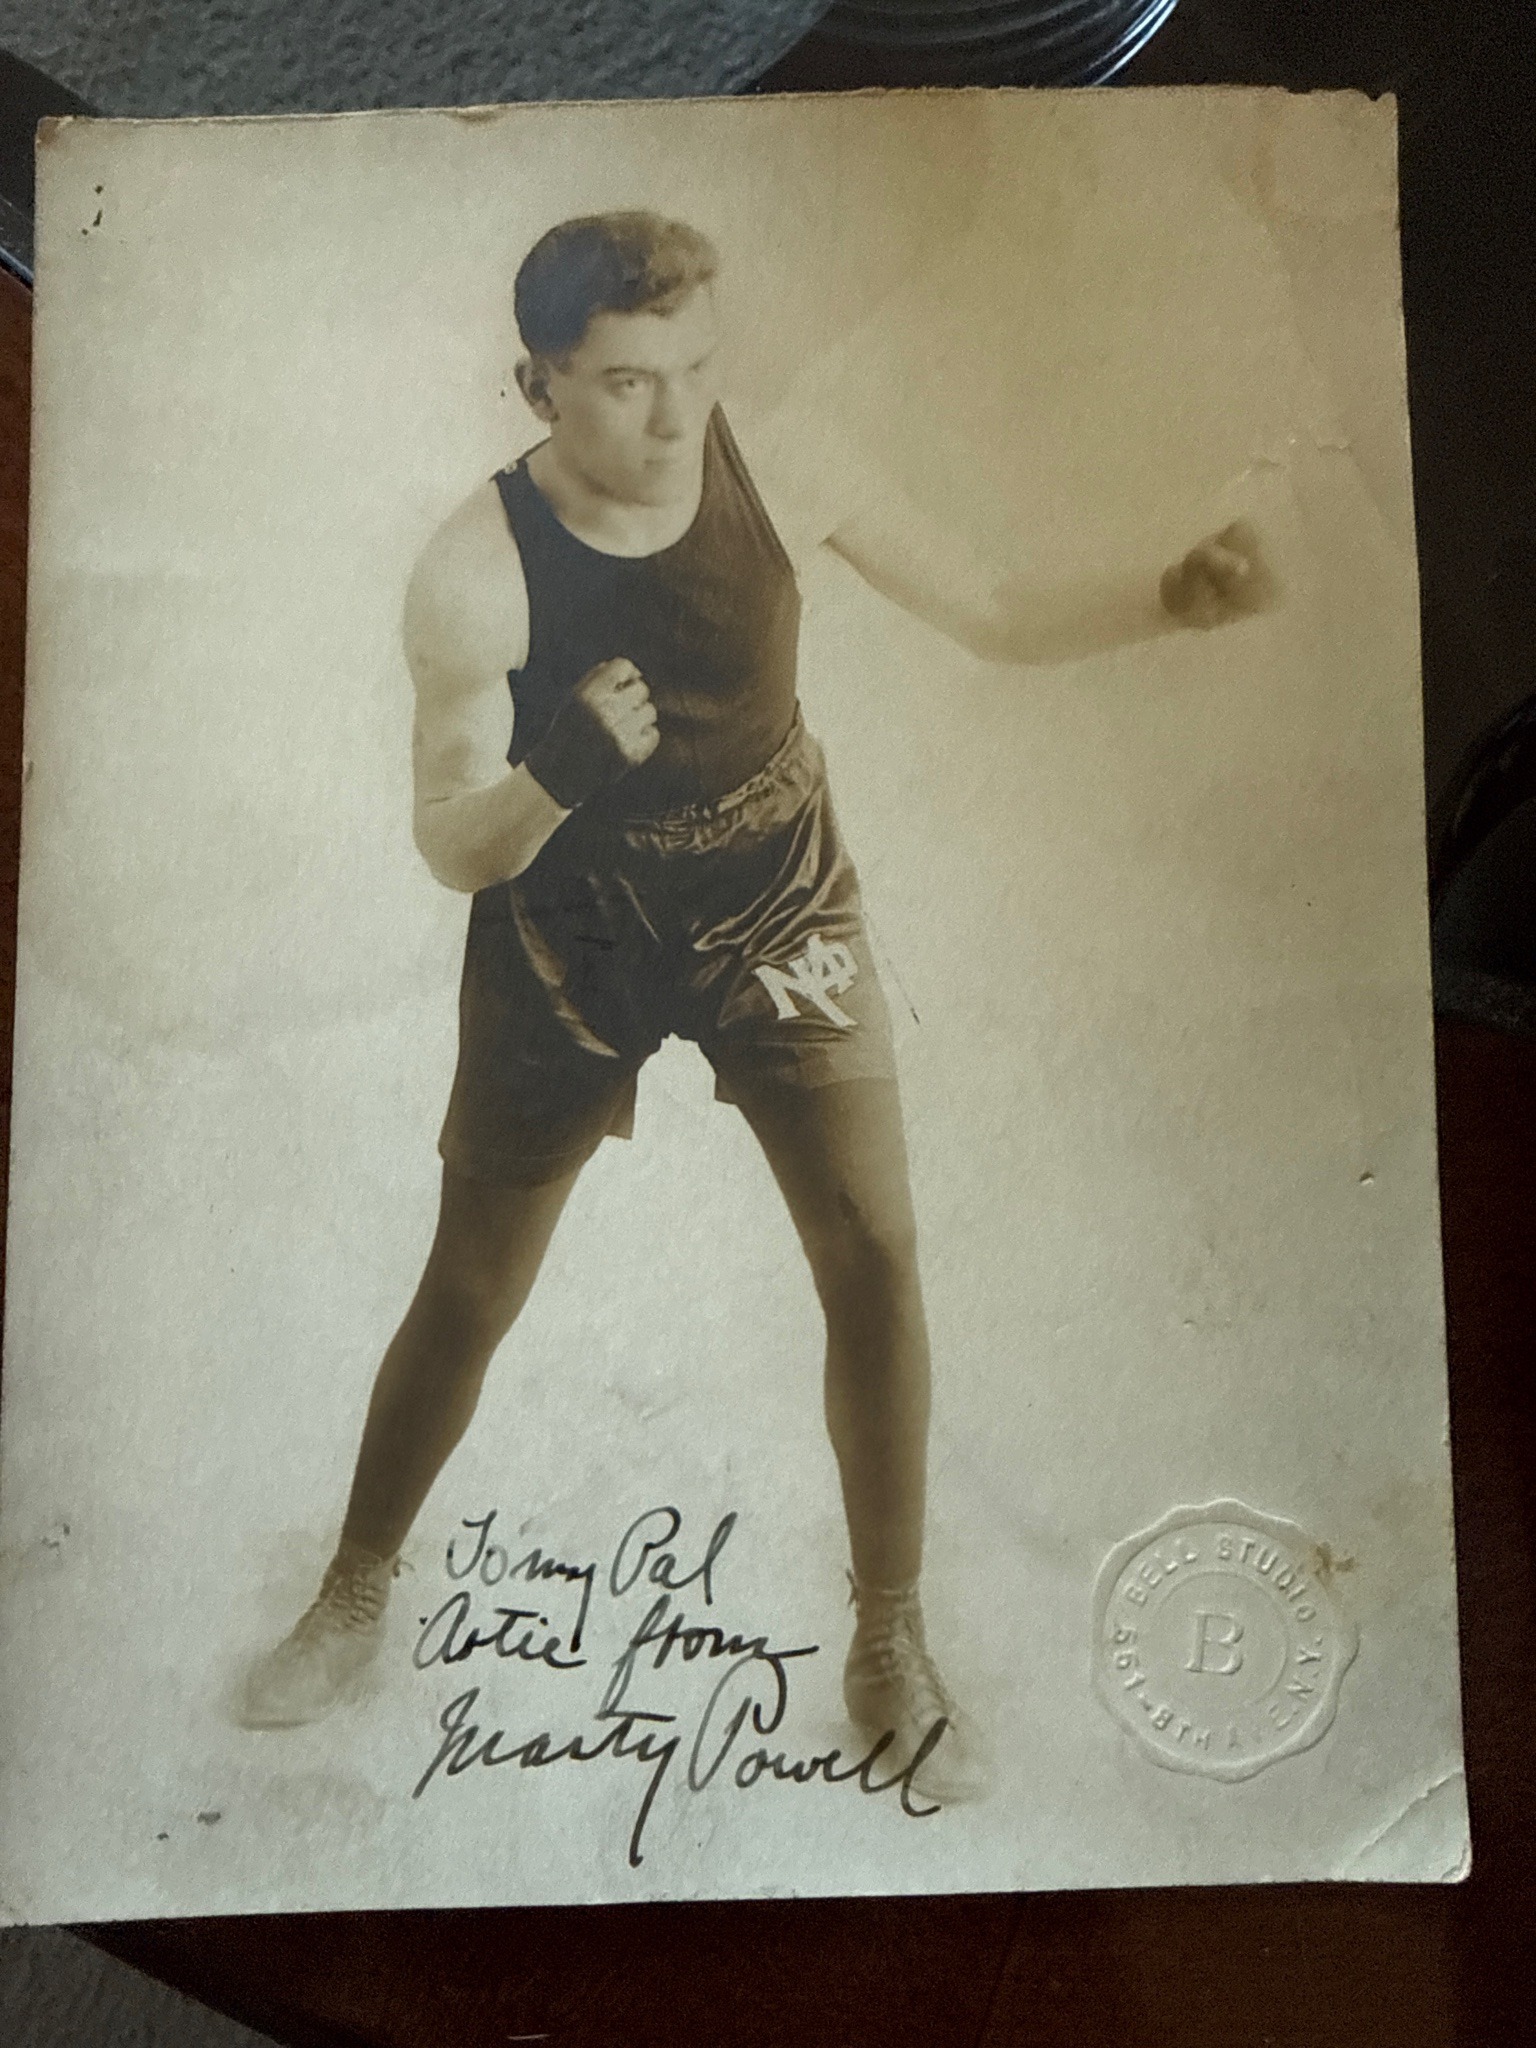 To my Pal
Artie from
Marty Powell
BELL STUDIO
B
561-8TH AVE. N.Y.